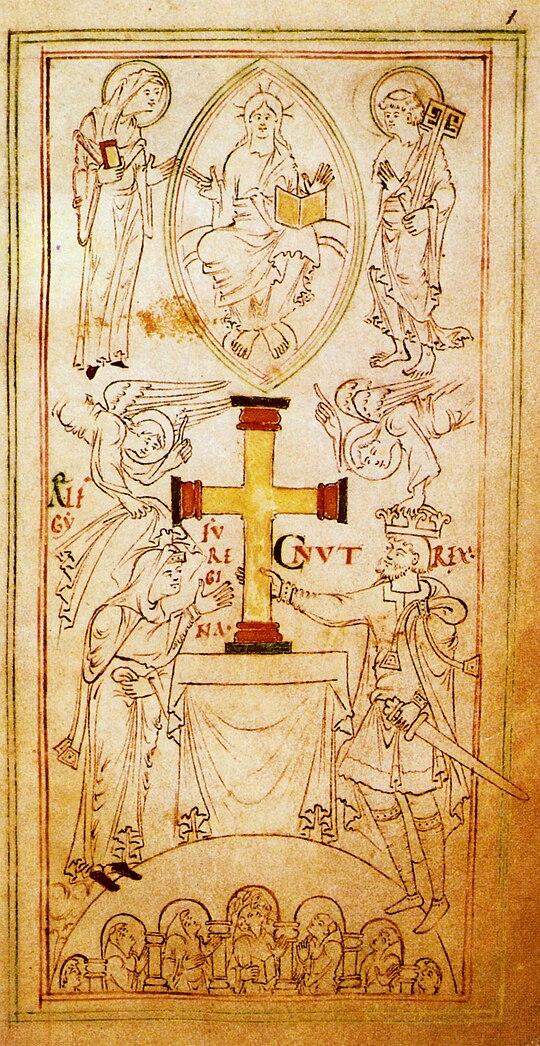 1
ÆLF
GY
FV
RE
GI
NA·
CNVT REX: